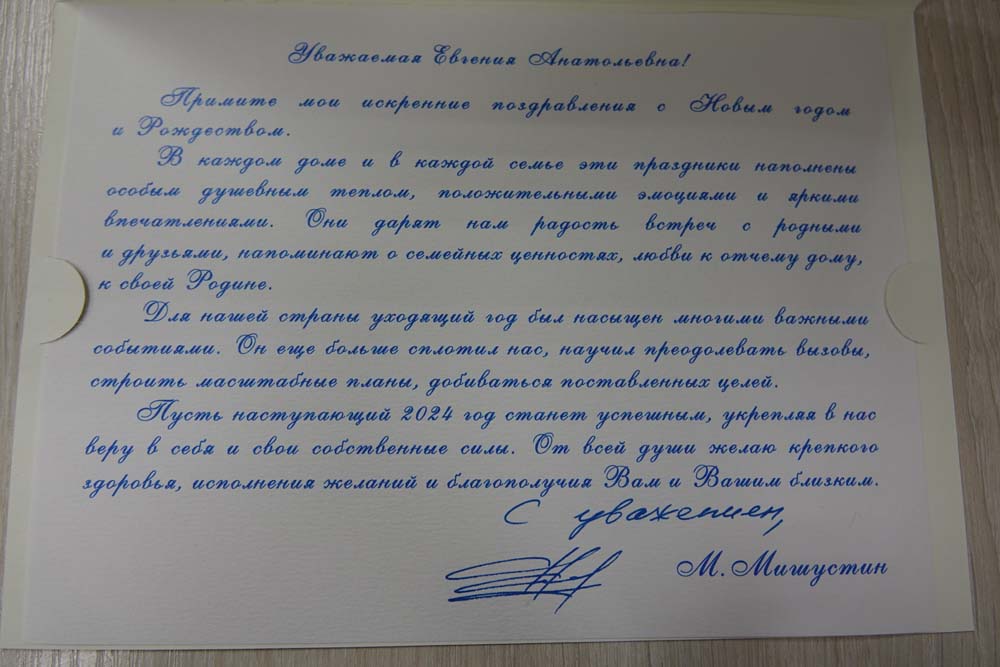 Уважаемая Евгения Анатольевна!
Примите мои искренние поздравления с Новым годом
и Рождеством.
В каждом доме и в каждой семье эти праздники наполнены
особым душевным теплом, положительными эмоциями и яркими
впечатлениями. Они дарят нам радость встреч с родными
и друзьями, напоминают о семейных ценностях, любви к отчему дому,
к своей Родине.
Для нашей страны уходящий год был насыщен многими важными
событиями. Он еще больше сплотил нас, научил преодолевать вызовы,
строить масштабные планы, добиваться поставленных целей.
Пусть наступающий 2024 год станет успешным, укрепляя в нас
веру в себя и свои собственные силы. От всей души желаю крепкого
здоровья, исполнения желаний и благополучия Вам и Вашим близким.
С уважением,
М. Мишустин